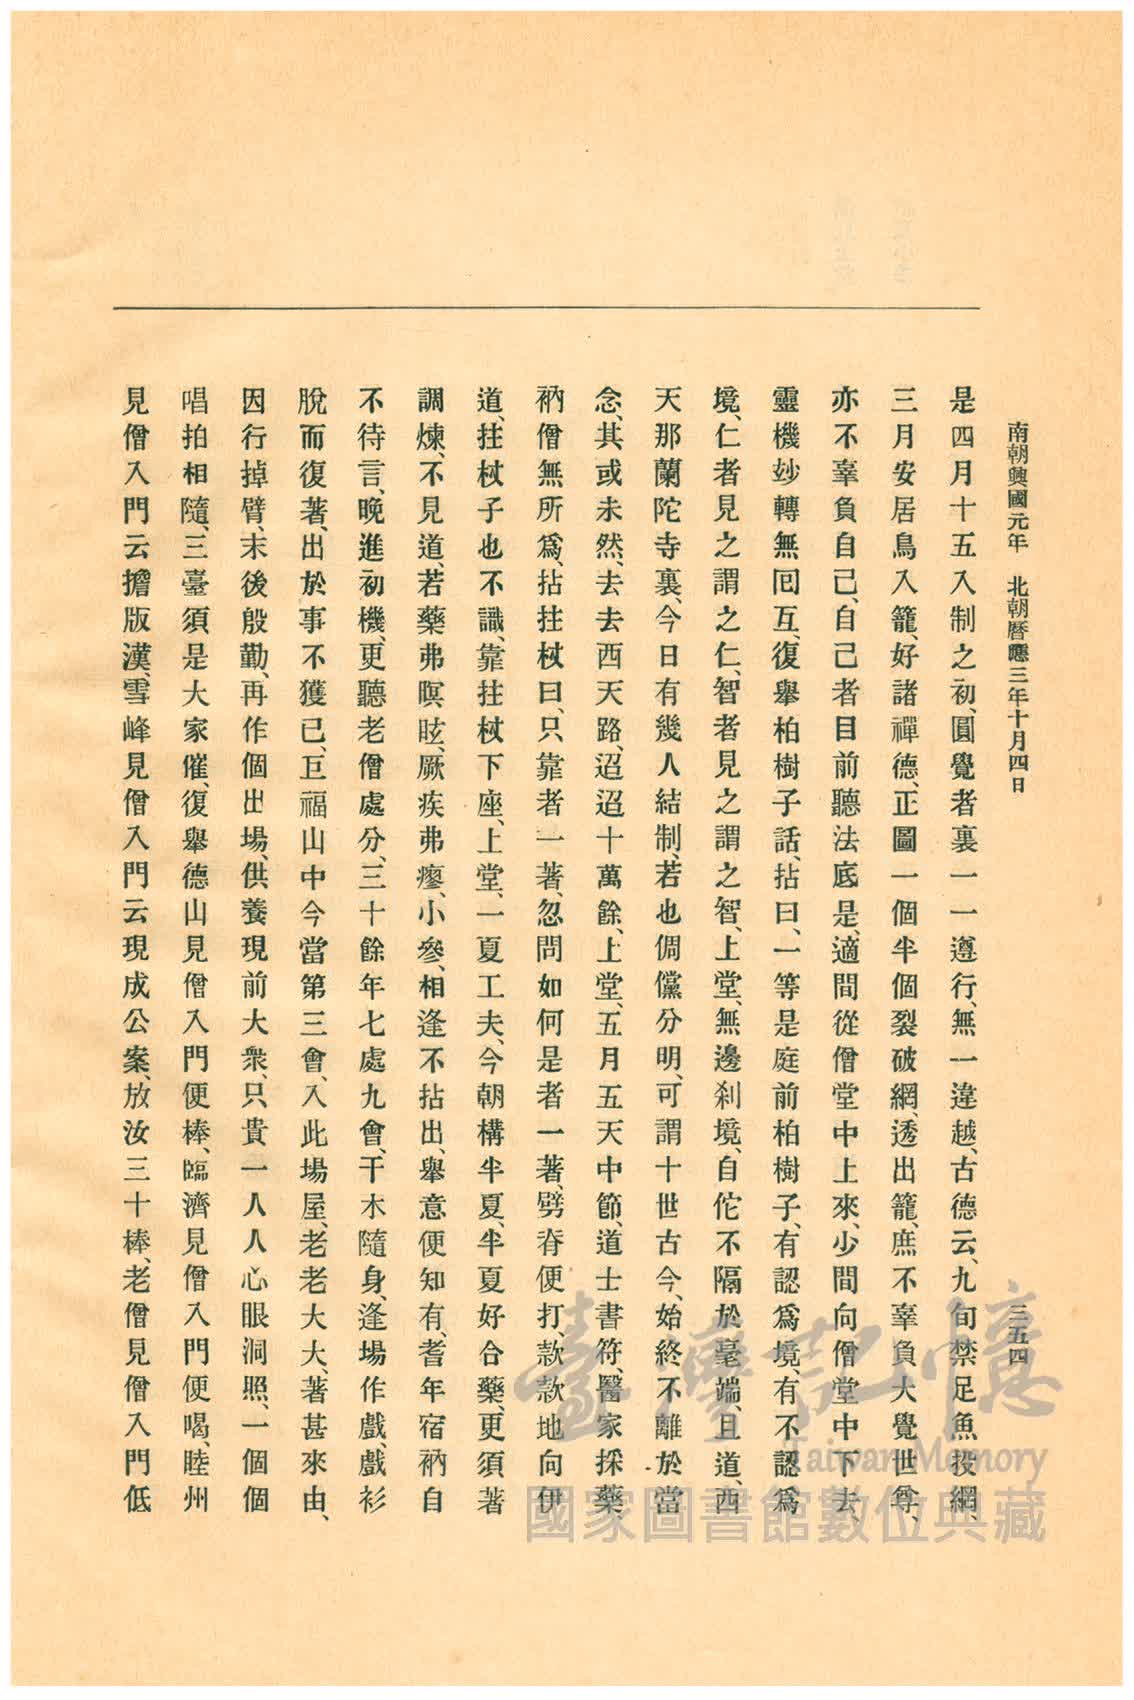 南朝興國元年　北朝曆應三年十月四日
三五四
是四月十五入制之初、圓覺者裏一一遵行、無一違越、古德云、九旬禁足魚投網、
三月安居鳥入籠、好諸禪德、正圖一個半個裂破網、透出籠、庶不辜負大覺世尊、
亦不辜負自己、自己者目前聽法底是、適間從僧堂中上來、少間向僧堂中下去、
靈機玅轉無囘互、復舉柏樹子話、拈曰、一等是庭前柏樹子、有認爲境、有不認爲
境、仁者見之謂之仁、智者見之謂之智、上堂、無邊刹境、自佗不隔於毫端、且道、西
天那蘭陀寺裏、今日有幾人結制、若也倜儻分明、可謂十世古今、始終不離於當
念、其或未然、去去西天路、迢迢十萬餘、上堂、五月五天中節、道士書符、醫家採藥、
衲僧無所爲、拈拄杖曰、只靠者一著、忽問如何是者一著、劈脊便打、款款地向伊
道、拄杖子也不識、靠拄杖下座、上堂、一夏工夫、今朝構半夏、半夏好合藥、更須著
調煉、不見道、若藥弗瞑眩、厥疾弗瘳、小參、相逢不拈出、舉意便知有、耆年宿衲自
不待言、晚進初機、更聽老僧處分、三十餘年七處九會、干木隨身、逢場作戲、戲衫
脫而復著、出於事不獲已、巨福山中今當第三會、入此場屋、老老大大、著甚來由、
因行掉臂、末後殷勤、再作個出場、供養現前大衆、只貴一人人心眼洞照、一個個
唱拍相隨、三臺須是大家催、復舉德山見僧入門便棒、臨濟見僧入門便喝、睦州
見僧入門云擔版漢、雪峰見僧入門云現成公案、放汝三十棒、老僧見僧入門低
臺灣記憶
Taiwan Memory
國家圖書館數位典藏